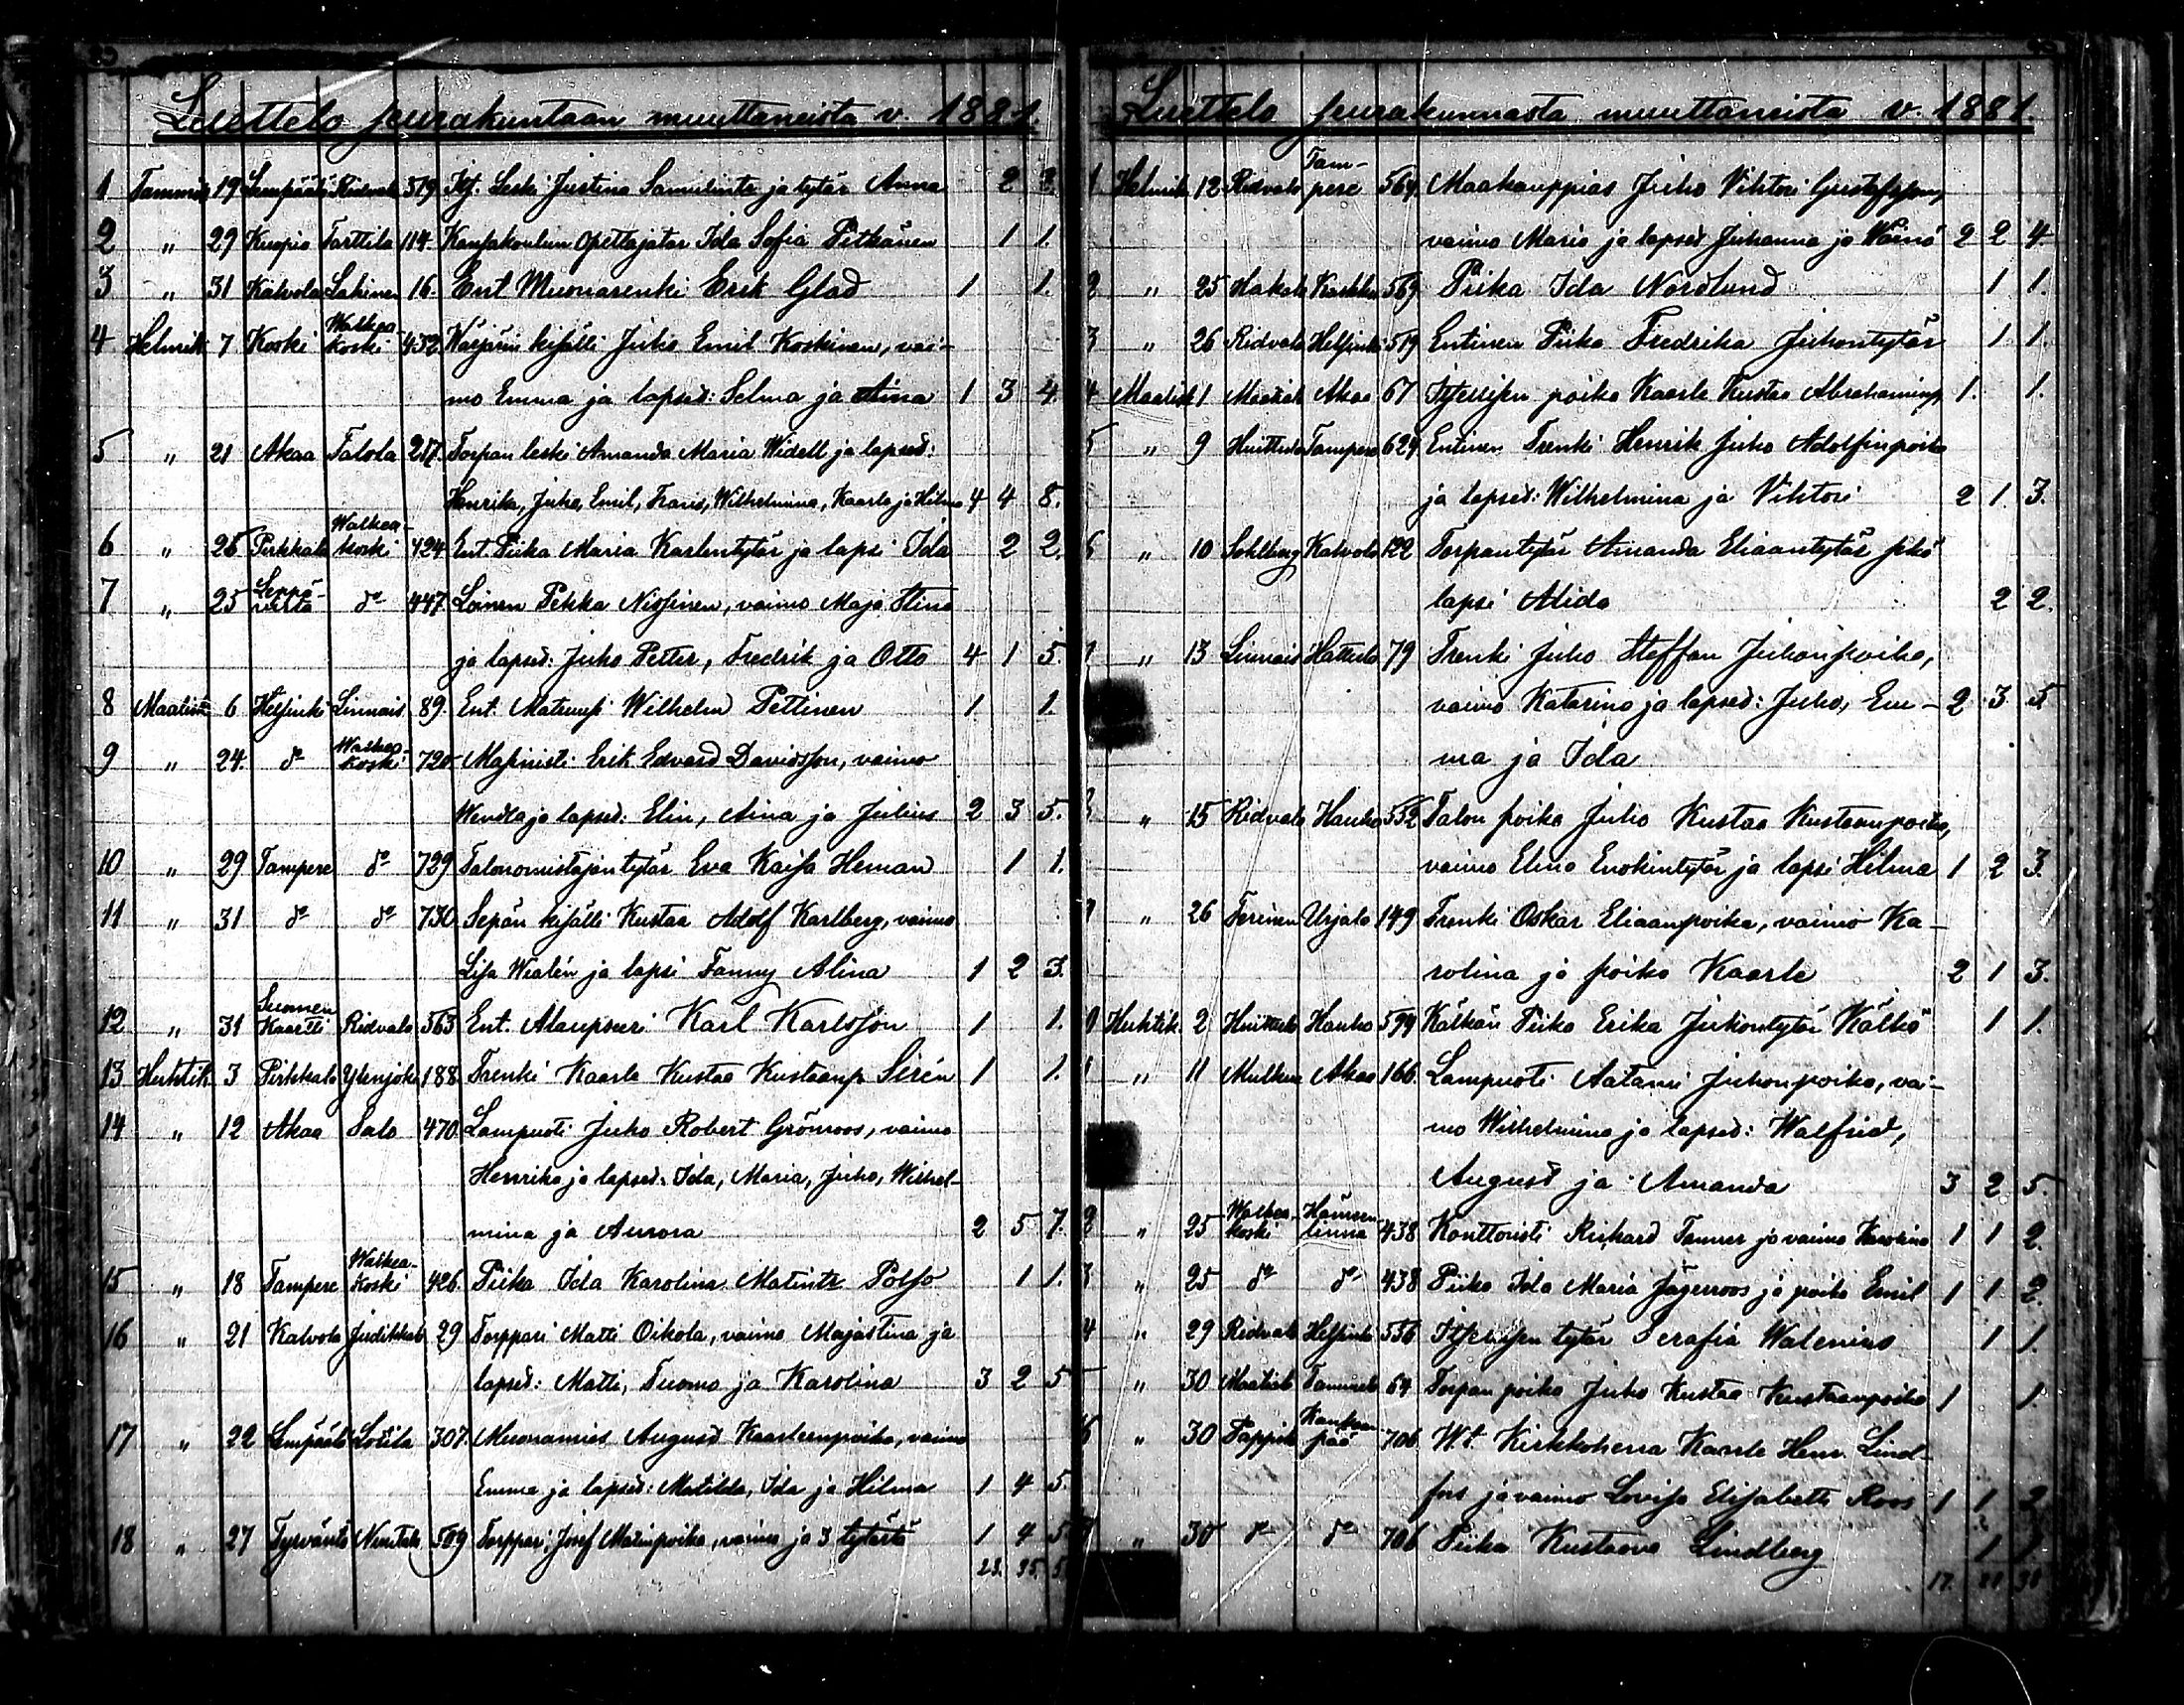 Luettelo seurakuntaan muuttaneista v. 1881.
1 Tammik 19 Lempäälä Ridvala 519 Itf. Leski Justina Samulintr ja tytär Anna 2 2.
2 " 29 Kuopio Tarttila 114. Kansakoulun Opettajatar Ida Sofia Pitkänen 1 1.
3 " 31 Kalvola Lahinen 16. Ent Muonarenki Erik Glad 1 1.
4 Helmik 7 Koski Walkea-koski 432 Värjärin kisälli Juho Emil Koskinen, vai-
mo Emma ja lapsed: Selma ja Aina 1 3 4.
5 " 21 Akaa Talola 217. Torpan leski Amanda Maria Widell ja lapsed:
Henrika, Juho, Emil, Frans, Wilhelmina, Kaarle ja Hilma 4 4 8.
6 " 25 Pirkkala Walkea-koski 424 Ent Piika Maria Karlentytär ja lapsi Ida 2 2.
7 " 25 Leppä-virta do 447 Loinen Pekka Nissinen, vaimo Maja Stina
ja lapsed: Juho Petter, Fredrik ja Otto 4 1 5.
8 Maalisk 6 Helsinki Linnais 89. Ent. Matruusi Wilhelm Pettinen 1. 1.
9 " 24. do Walkea-koski 720 Masinisti Erik Edvard Davidsson, vaimo
Wendla ja lapsed: Elin, Aina ja Julius 2 3 5.
10 " 29 Tampere do 729 Talonomistajan tytär Eva Kaisa Heman 1 1.
11 " 31 do do 730 Sepän kisälli Kustaa Adolf Karlberg, vaimo
Lisa Wealén ja lapsi Fanny Alina 1 2 3.
12 " 31 Suomen Kaarti Ridvala 563 Ent. Alaupseri Karl Karlsson 1 1.
13 Huhtik 3 Pirkkala Ylenjoki 188 Trenki Kaarle Kustaa Kustaanp Sirén 1 1.
14 " 12 Akaa Salo 470 Lampuoti Juho Robert Grönroos, vaimo
Henrika ja lapsed: Ida, Maria, Juho, Wilhel-
mina ja Aurora 2 5 7.
15 " 18 Tampere Walkea-koski 426. Piika Ida Karolina Matintr Polso 1 1.
16 " 21 Kalvola Judikkala 29 Torppari Matti Oikola, vaimo Majastina ja
lapsed: Matti, Tuomo ja Karolina 3 2 5
17 " 22 Lempäälä Lotila 307. Muonamies August Kaarleenpoika, vaimo
Emma ja lapsed: Matilda, Ida ja Hilma 1 4 5.
18 " 27 Tyrväntö 509 Torppari Josef Matinpoika, vaimo ja 3 tytärtä 1 4 5
23. 35.
Luettelo seurakunnasta muuttaneista v. 1881.
1 Helmik 12 Ridvala Tam-pere 564. Maakauppias Juho Vihtori Gustafsson,
vaimo Maria ja lapsed Juhanna ja Wäinö 2 2 4
2 " 25 Hakala 569 Piika Ida Nordlund 1 1.
3 " 26 Ridvala Helsinki 519 Entinen Piika Fredrika Juhontytär 1 1.
4 Maalisk 1 Akaa 67 Itsellisen poika Kaarle Kustaa Abrahaminp. 1. 1.
5 " 9 Huittula Tampere 629 Entinen Trenki Henrik Juho Adolfinpoika
ja lapsed: Wilhelmina ja Vihtori 2 1 3.
6 " 10 Sohlberg Kalvola 122 Torpantytär Amanda Eliaantytär sekä
lapsi Alida 2 2.
7 " 13 Linnais Hattula 79 Trenki Juho Steffan Juhonpoika,
vaimo Katarina ja lapsed: Juho, Em- 2 3 5
ma ja Ida
" 15 Ridvala Hauho 552 Talon poika Juho Kustaa Kustaanpoika,
vaimo Elina Enokintytär ja lapsi Hilma 1 2 3.
" 26 Terinen Urjala 149 Trenki Oskar Eliaanpoika, vaimo Ka-
rolina ja poika Kaarle 2 1 3.
Huhtik. 2 Huittula Hauho 599 Kälkän Piika Erika Juhontytär Kälkö 1 1.
" 11 Mulkua Akaa 166. Lampuoti Aatami Juhonpoika, vai-
mo Wilhelmina ja lapsed: Walfrid,
August ja Amanda 3 2 5.
2 " 25 Walkea-koski Hämeen linna 438 Konttoristi Rikhard Tanner ja vaimo Karolina 1 1 2.
3 " 25 do do 438 Piika Ida Maria Jägerroos ja poika Emil 1 1 2.
4 " 29 Ridvala Helsinki 556 Itsellisen tytär Serafia Walenius 1 1.
5 " 30 Tammela 64 Torpan poika Juho Kustaa Kustaanpoika 1 1.
6 " 30 Pappila Kankaan pää 706 W.t. Kirkkoherra Kaarle Henr. Lind-
fors ja vaimo Lovisa Elisabetti Roos 1 1 2
" 30 do do 706 Piika Kustaava Lindberg 1 1
17.